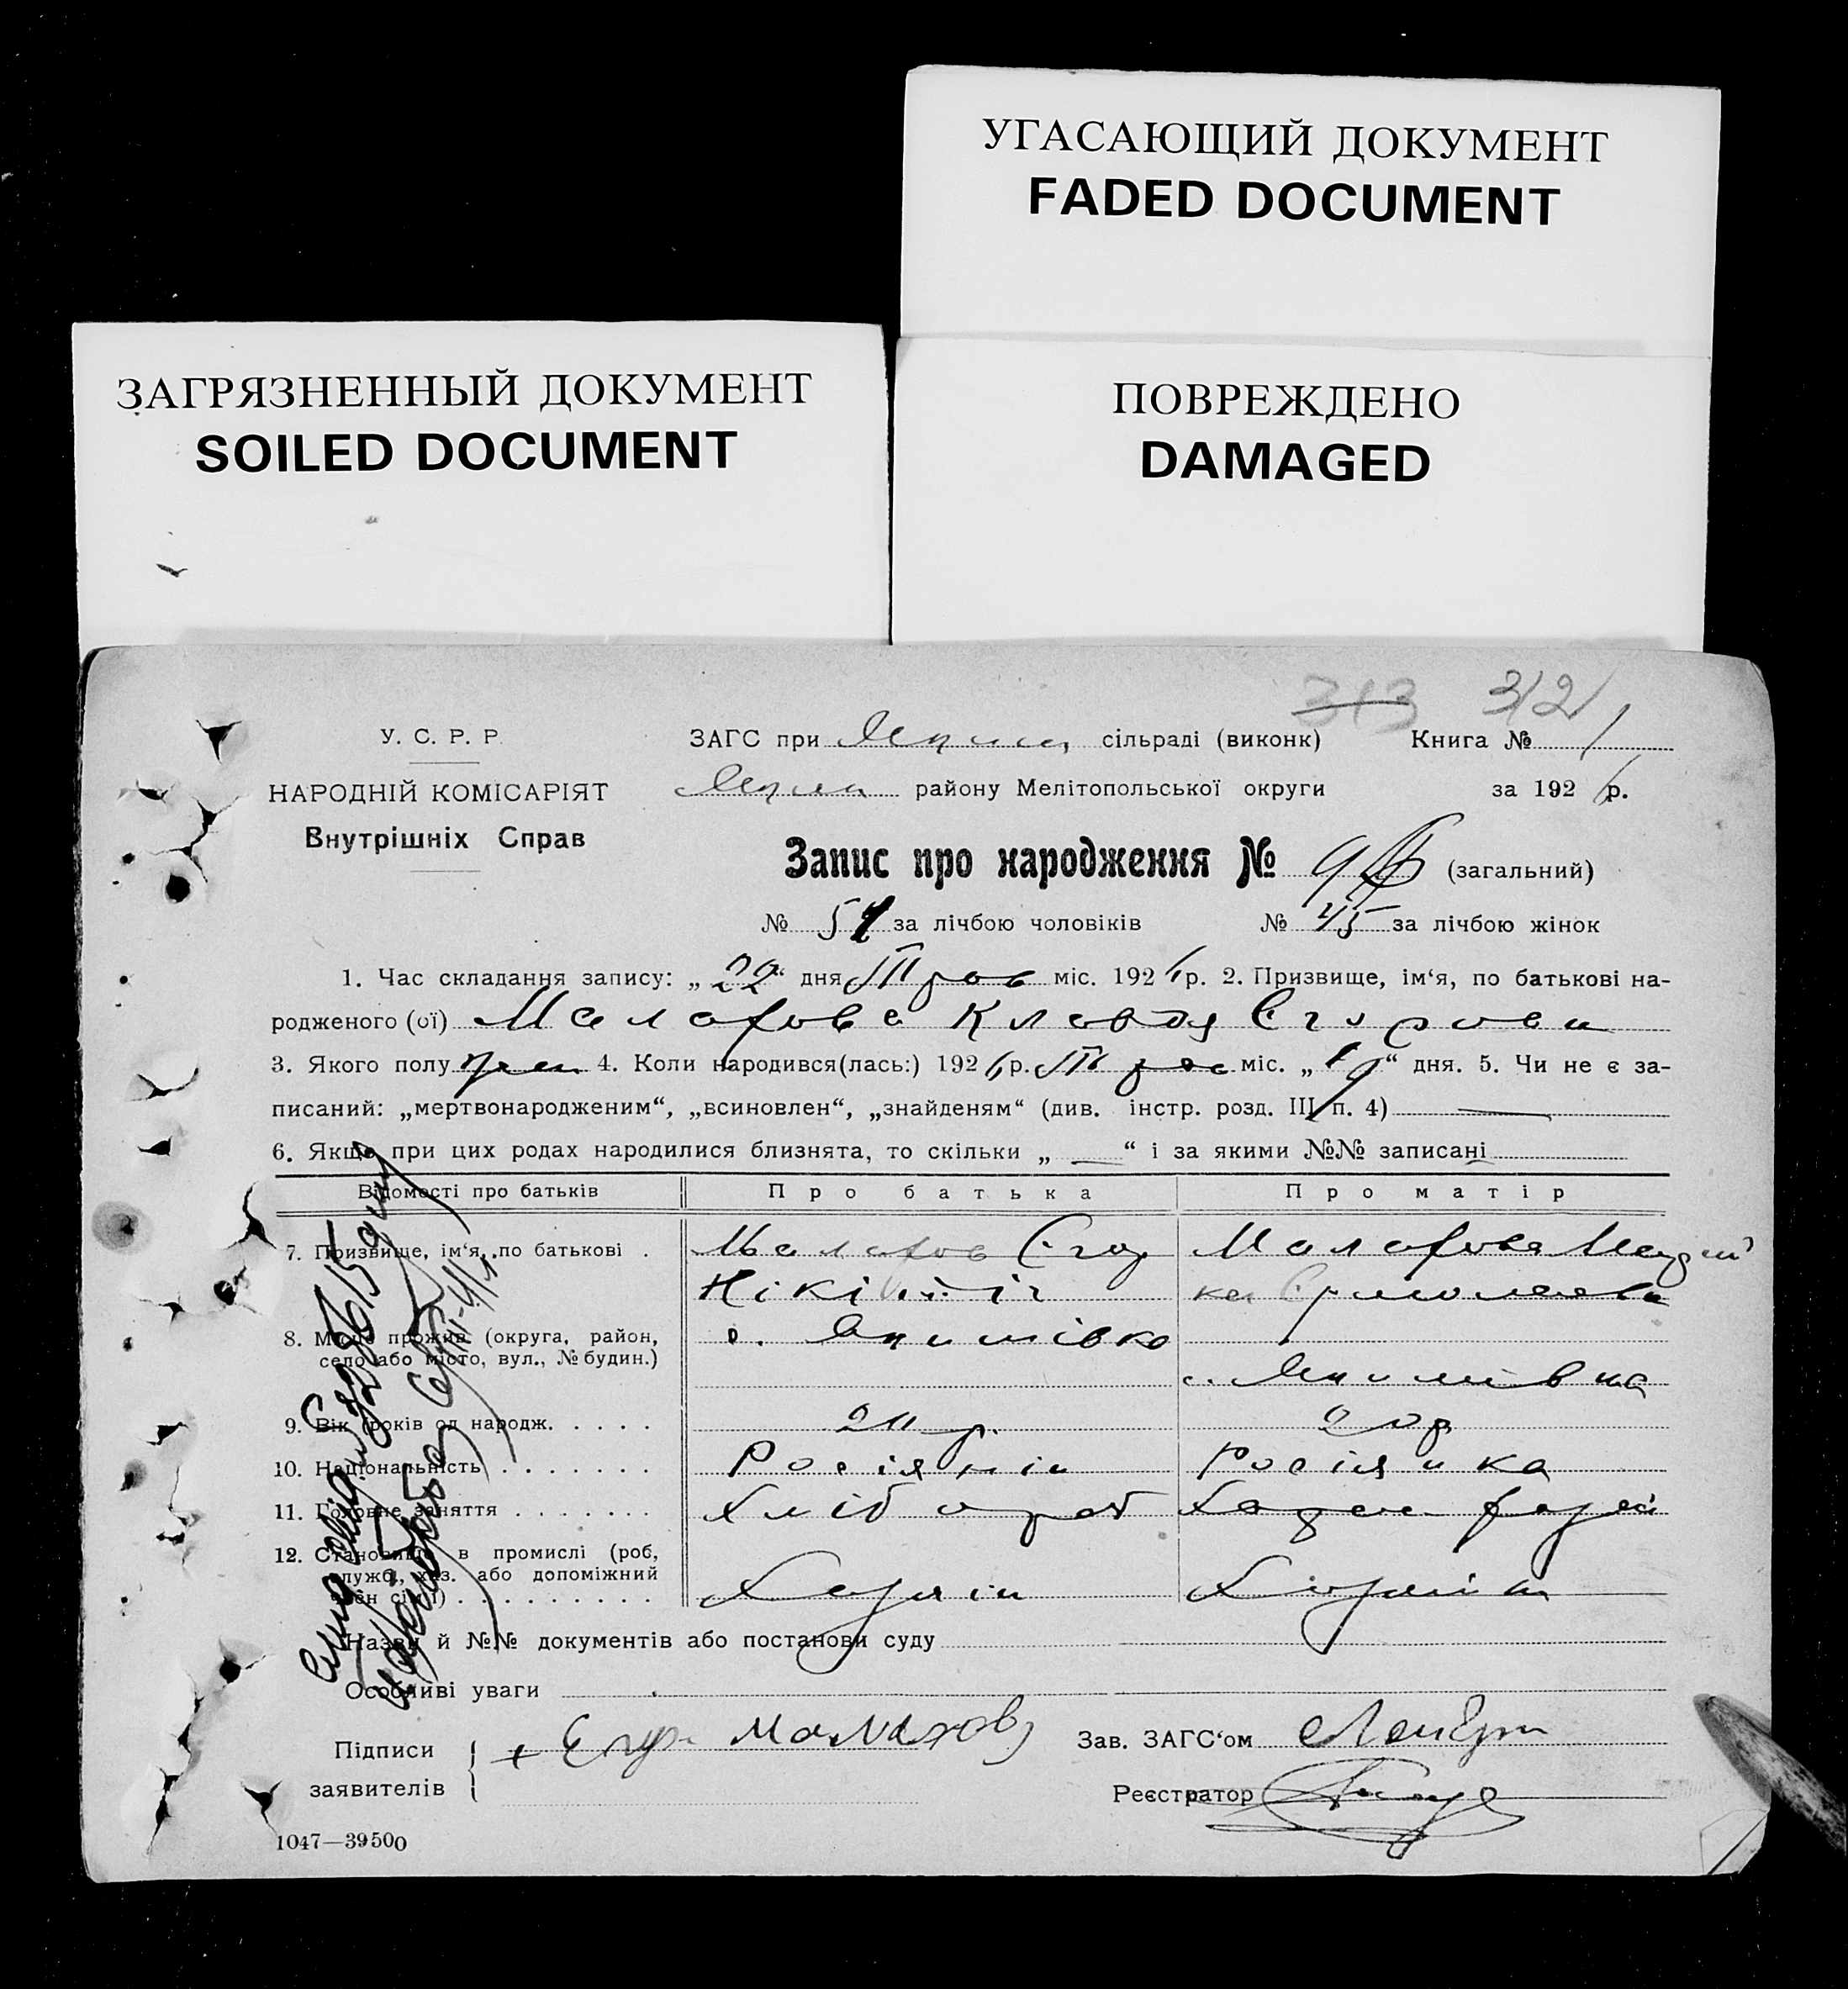 УГАСАЮЩИЙ ДОКУМЕНТ
FADED DOCUMENT
ЗАГРЯЗНЕННЫЙ ДОКУМЕНТ
SOILED DOCUMENT
ПОВРЕЖДЕНО
DAMAGED
313 312
У. С. Р. Р
НАРОДНІЙ КОМІСАРІЯТ
Внутрішніх Справ
ЗАГС при сільраді (виконк) Книга № 1
району Мелітопольської округи за 1926 р.
Запис про народження № (загальний)
№ за лічбою чоловіків № 45 за лічбою жінок
1. Час складання запису: „22“ дня Трав міс. 1926 р. 2. Призвище, ім‘я, по батькові на-
родженого (ої) Малахова Клавдя Єгорови
3. Якого полу жін 4. Коли народився(лась:) 1926 р. Трав міс. „19“ дня. 5. Чи не є за-
писаний: „мертвонародженим“, „всиновлен“, „знайденям“ (див. інстр. розд. III п. 4) —
6. Якщо при цих родах народилися близнята, то скільки „ — “ і за якими №№ записані
Відомості про батьків Про батька Про матір
7. Призвище, ім‘я, по батькові . Малахов Єгор Малахова
Нікітіч
8. Місце прожив. (округа, район, с. Якимівка
село або місто, вул., № будин.) с. Якимівка
9. Вік (років од народж. . . . . р. 20 р
10. Національність . . . . . . . Росіянін Росіянка
11. Головне заняття . . . . . . . Хлібороб
12. Становище в промислі (роб,
служб., хаз. або допоміжний
член сім‘ї) . . . . . . . . . . Хазяїн
Назви й №№ документів або постанови суду
Особливі уваги
Підписи Егор Малахов Зав. ЗАГС‘ом
заявителів Реєстратор
1047—39500